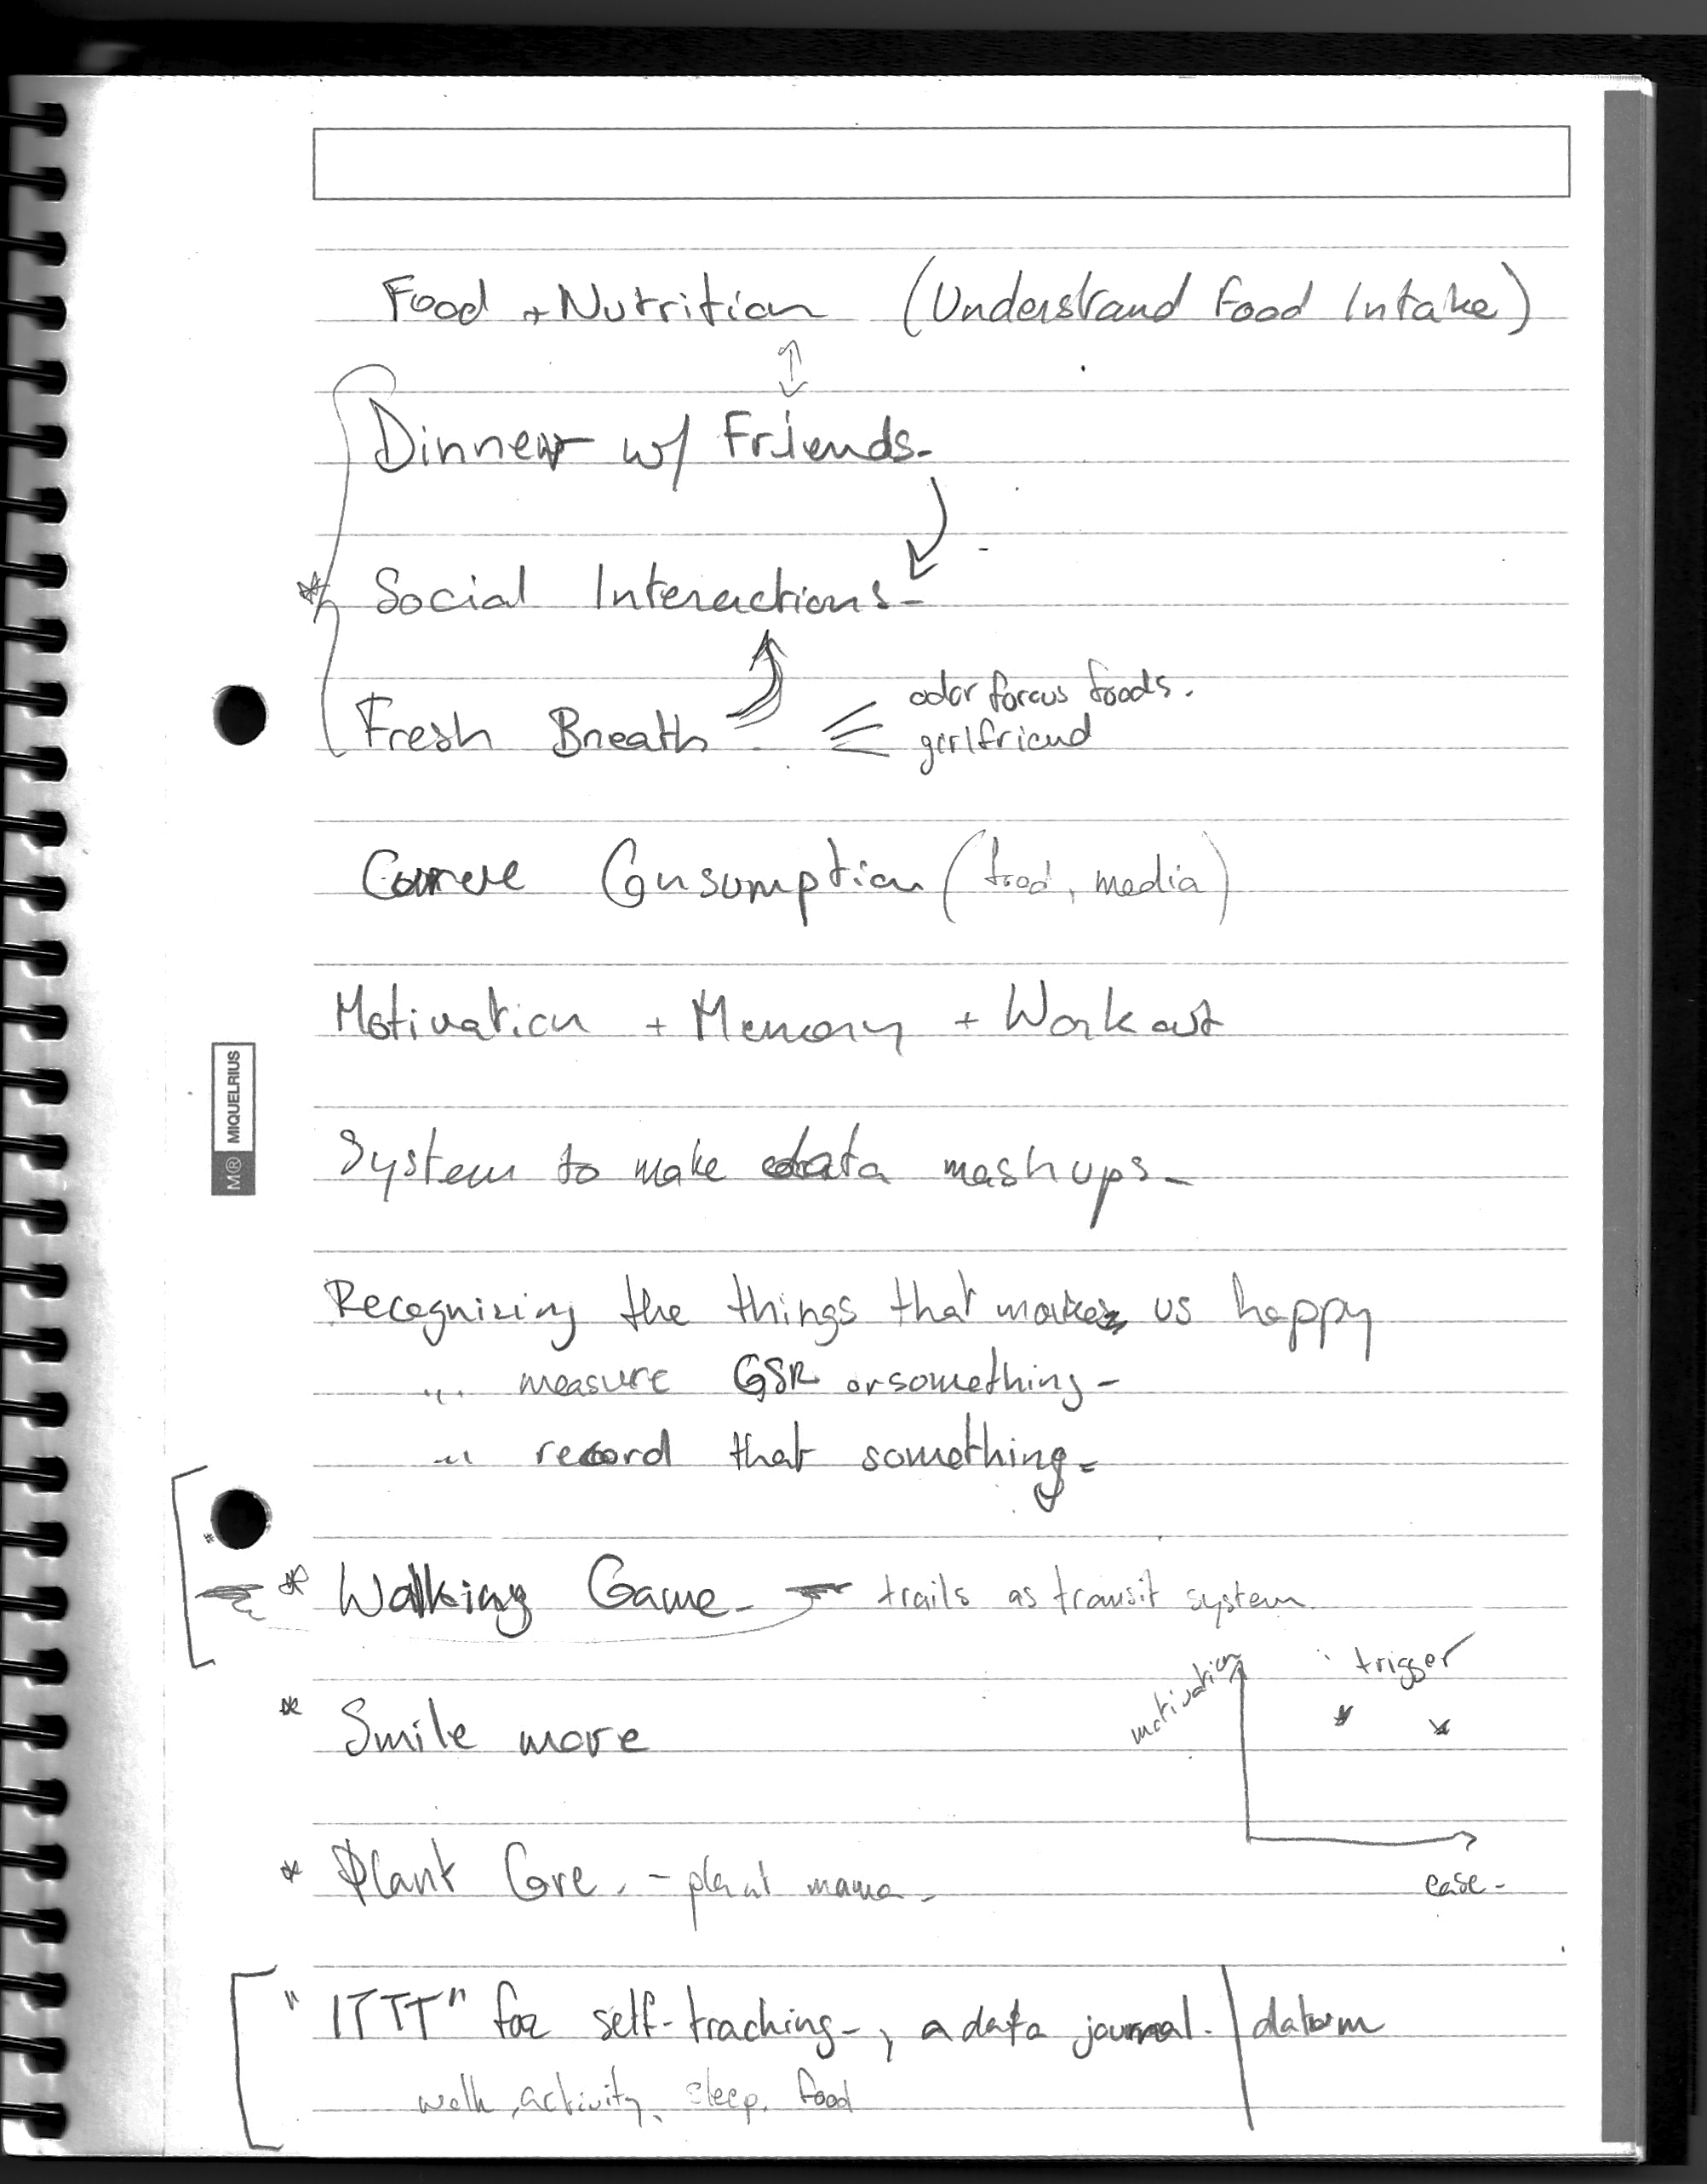 Food + Nutrition (Understand Food Intake)
Dinner w/ Friends-
* Social Interactions-
Fresh Breath
odor forcus foods.
girlfriend
Consumption (food, media)
Motivation + Memory + Workout
M® MIQUELRIUS
System to make data mashups-
Recognizing the things that makes us happy
... measure GSR or something-
... record that something-
* Walking Game - trails as transit system
motivation
trigger
* Smile more
* Plant Care. - plant mama -
ease -
"ITTT" for self-traching-, a data journal. | datum
walk, activity, sleep, food